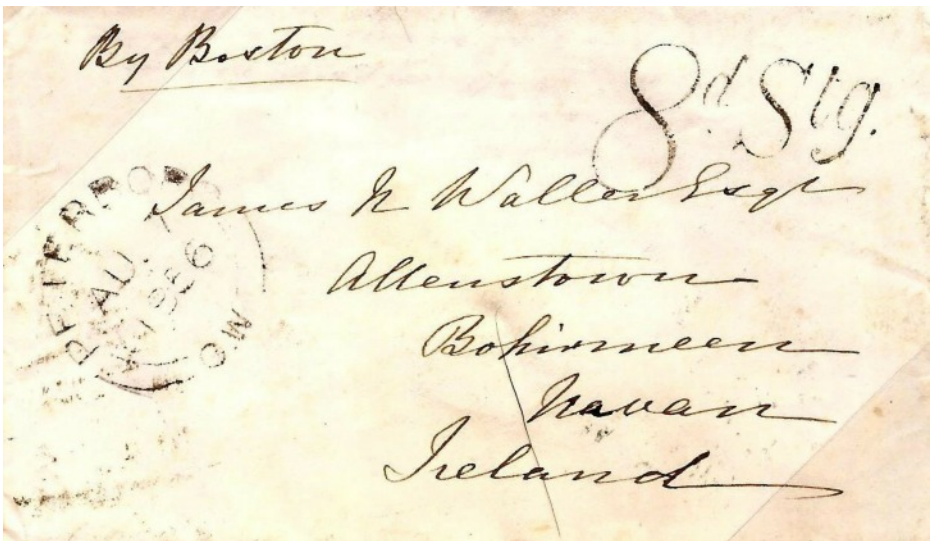 By Boston
8d Stg.
PETERBORO
AU
1856
James N Waller Esqr
Allenstown
Bohirmeen
Navan
Ireland